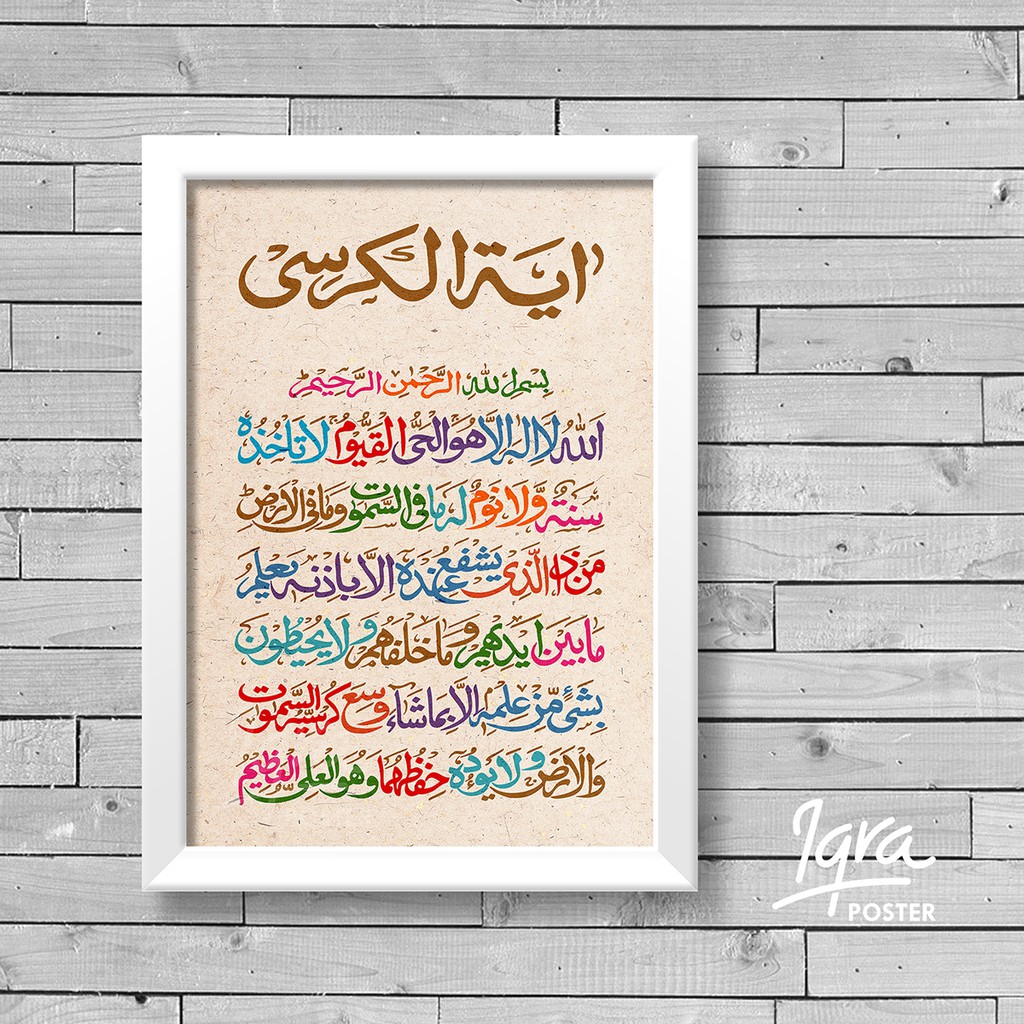 اية الكرسى
بسم الله الرَّحْمٰنِ الرَّحِيْمِ
اَللّٰهُ لَا اِلٰهَ اِلَّا هُوَ الْحَىُّ الْقَيُّوْمُ لَا تَأْخُذُهٗ
سِنَةٌ وَّلَا نَوْمٌ لَهٗ مَا فِى السَّمٰوٰتِ وَمَا فِى الْاَرْضِ
مَنْ ذَا الَّذِىْ يَشْفَعُ عِنْدَهٗ اِلَّا بِاِذْنِهٖ يَعْلَمُ
مَا بَيْنَ اَيْدِيْهِمْ وَمَا خَلْفَهُمْ وَلَا يُحِيْطُوْنَ
بِشَىْءٍ مِّنْ عِلْمِهٖ اِلَّا بِمَا شَاءَ وَسِعَ كُرْسِيُّهُ السَّمٰوٰتِ
وَالْاَرْضَ وَلَا يَئُوْدُهٗ حِفْظُهُمَا وَهُوَ الْعَلِىُّ الْعَظِيْمُ
Iqra
POSTER